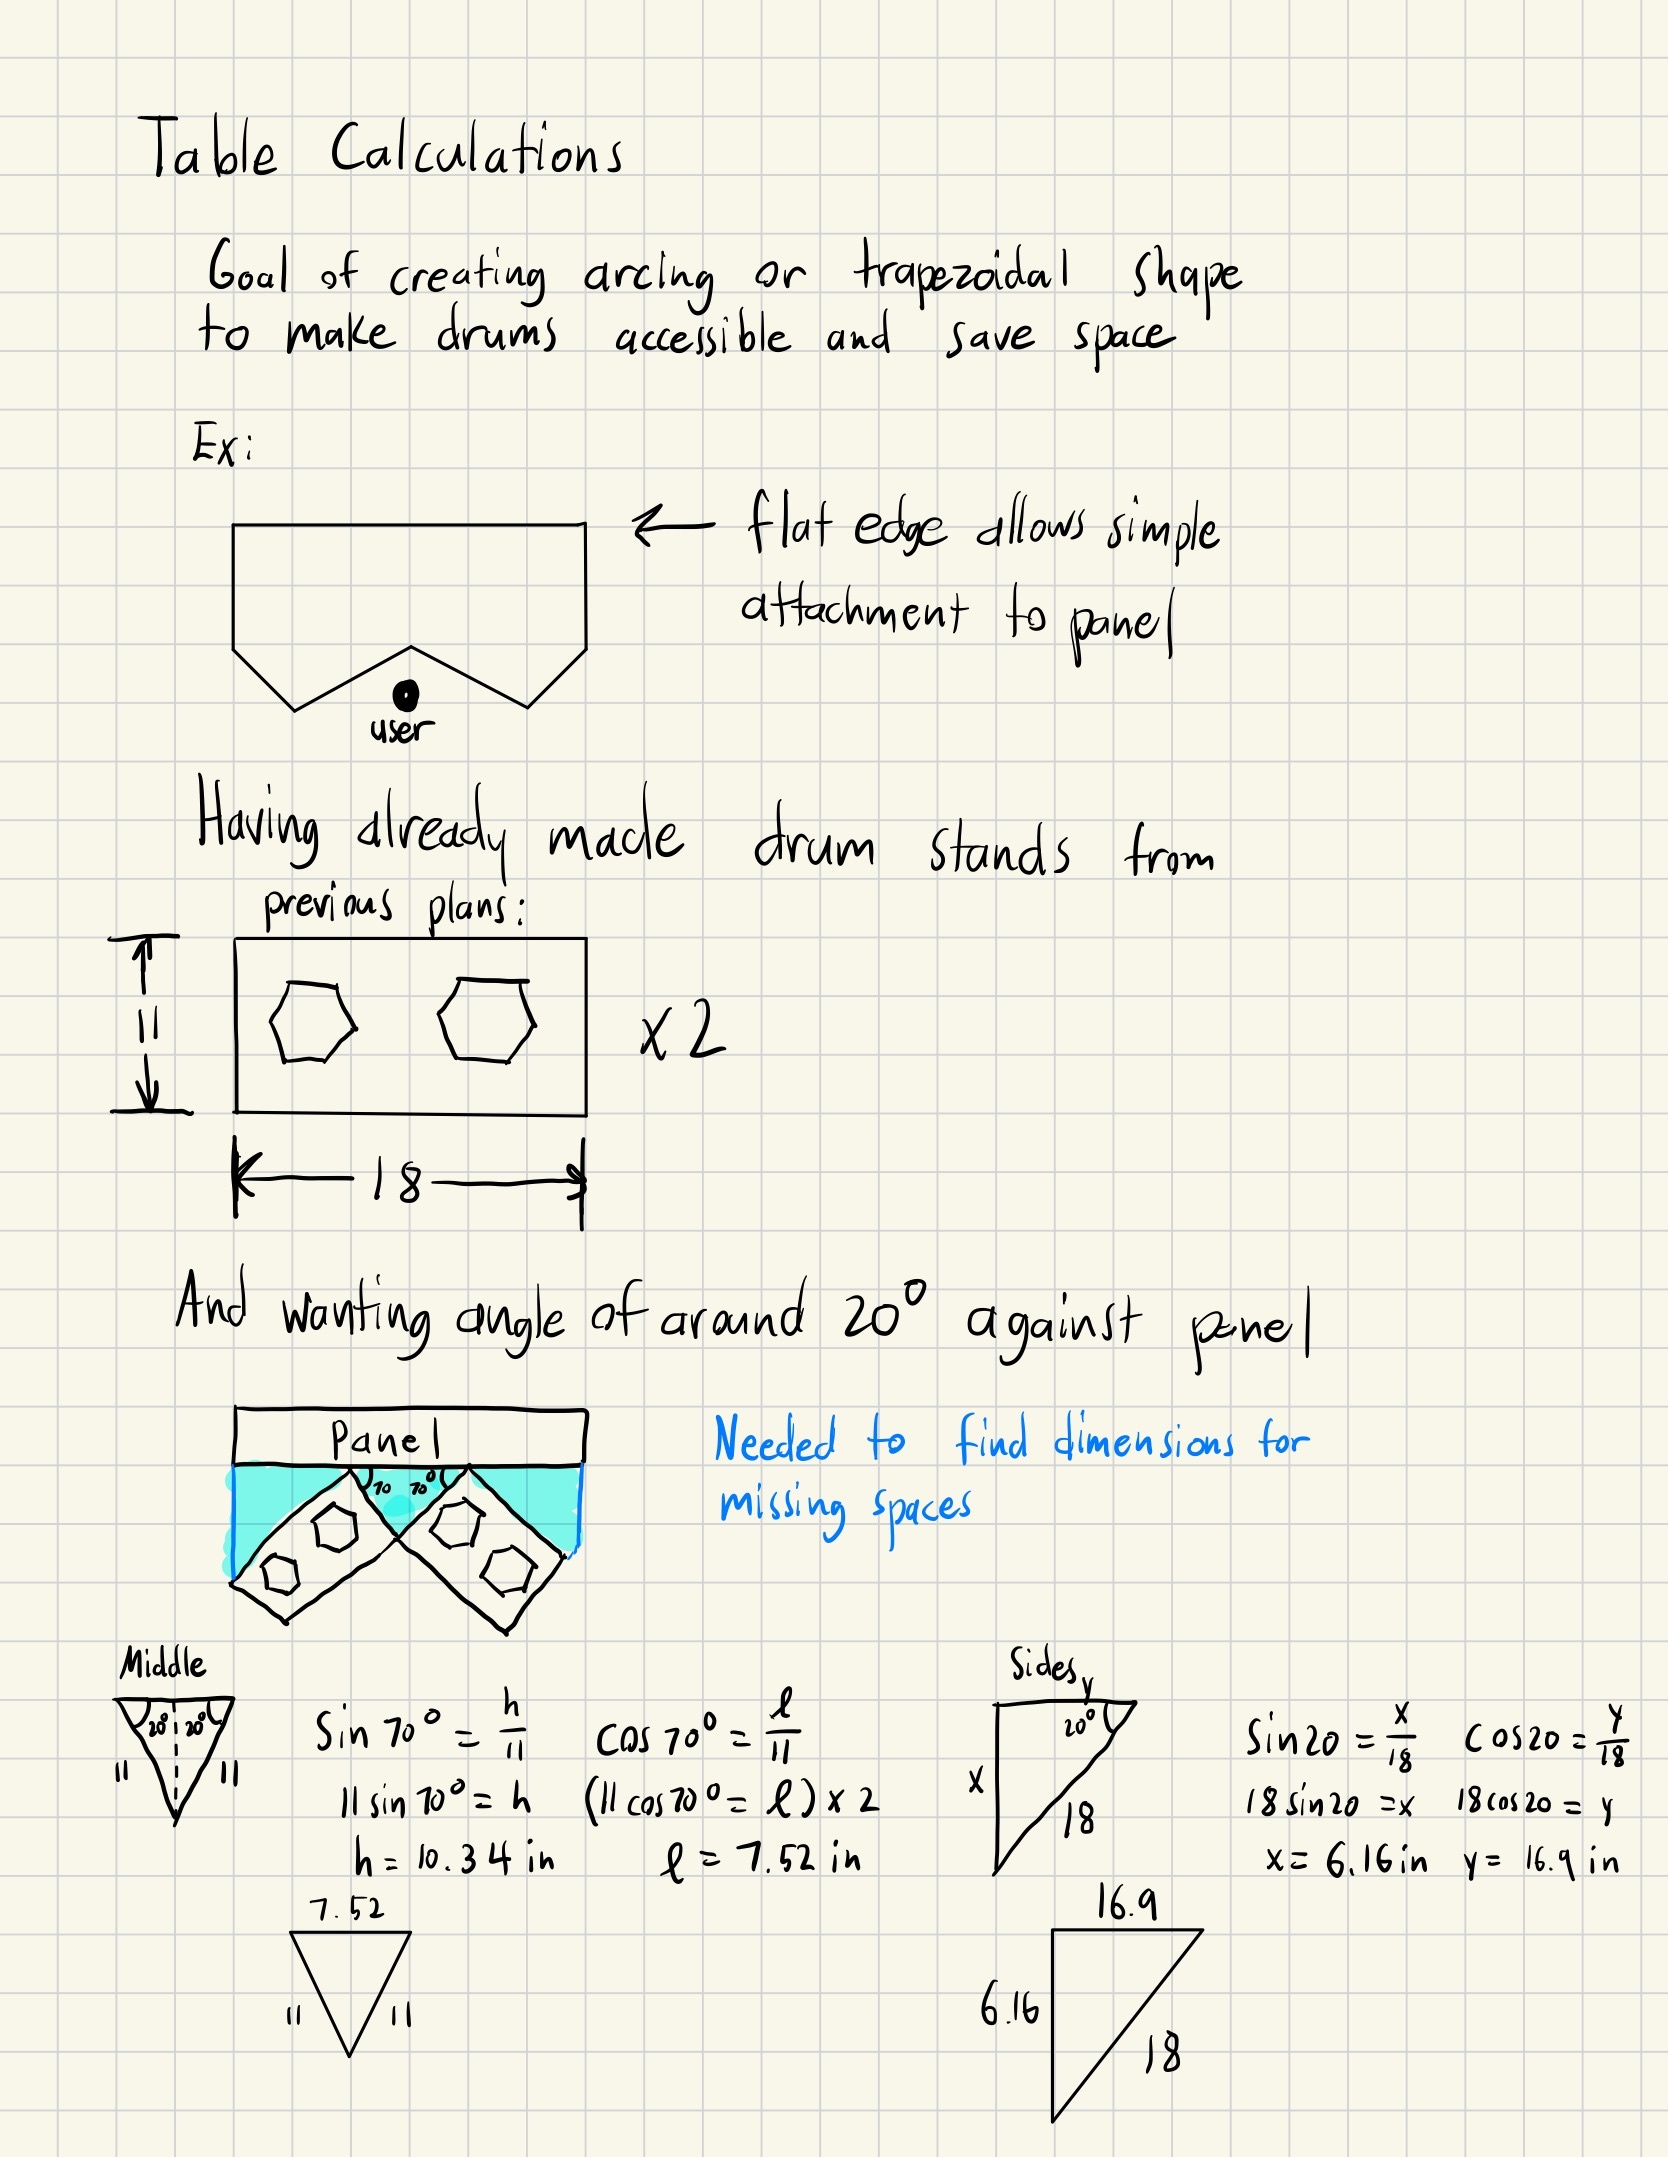 Table Calculations
Goal of creating arcing or trapezoidal shape
to make drums accessible and save space
Ex:
← flat edge allows simple
attachment to panel
user
Having already made drum stands from
previous plans:
11
x2
18
And wanting angle of around 20° against panel
Panel
70 70°
Needed to find dimensions for
missing spaces
Middle
20° 20°
11 11
Sin 70° = h/11
11 sin 70° = h
h = 10.34 in
cos 70° = ℓ/11
(11 cos 70° = ℓ) x 2
ℓ = 7.52 in
7.52
11 11
Sides
y
20°
x
18
Sin20 = x/18
18 sin20 = x
x = 6.16 in
Cos20 = y/18
18 cos20 = y
y = 16.9 in
16.9
6.16
18